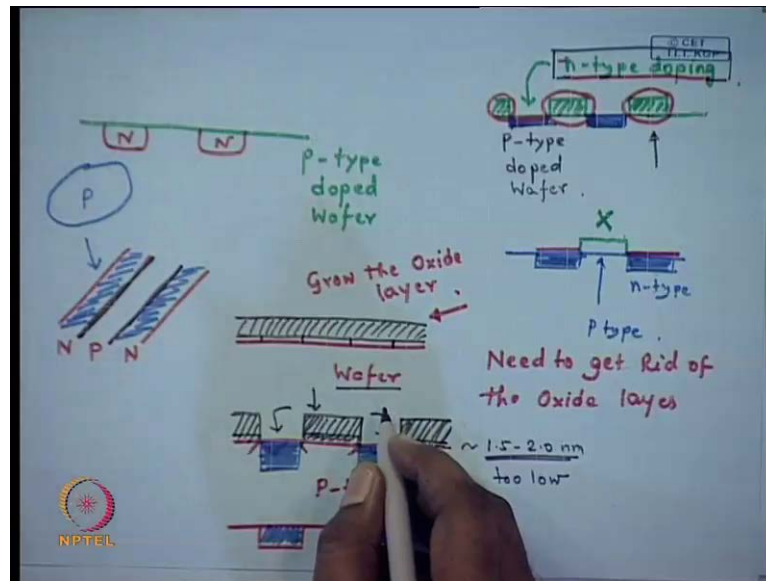 © CET
I.I.T. KGP
n-type doping
N N
P-type
doped
Wafer
P
N P N
P-type
doped
Wafer.
X
n-type
P type.
Grow the Oxide
layer.
Wafer
Need to get Rid of
the Oxide layes
~ 1.5-2.0 nm
too low
NPTEL